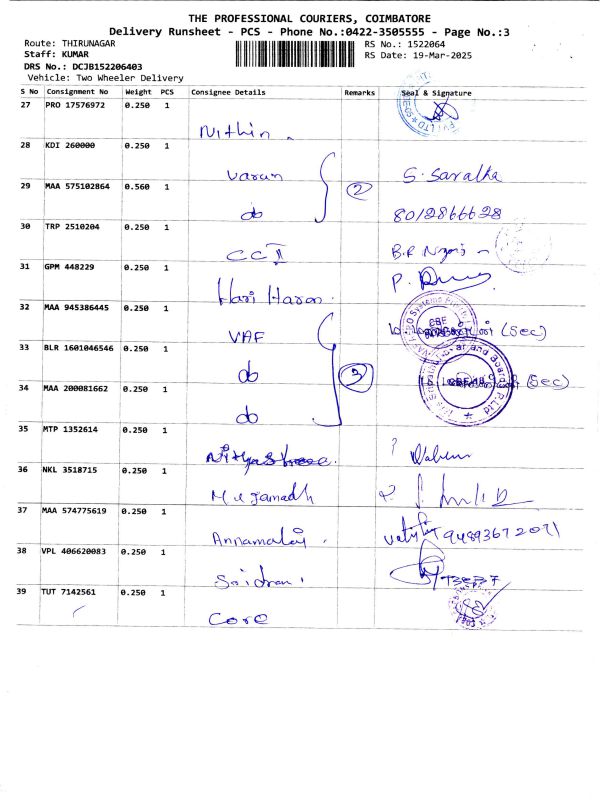 THE PROFESSIONAL COURIERS, COIMBATORE
Delivery Runsheet - PCS - Phone No.:0422-3505555 - Page No.:3
Route: THIRUNAGAR
RS No.: 1522064
Staff: KUMAR
RS Date: 19-Mar-2025
DRS No.: DCJB152206403
Vehicle: Two Wheeler Delivery
S No Consignment No Weight PCS Consignee Details Remarks Seal & Signature
27 PRO 17576972 0.250 1
Nithin
28 KDI 260000 0.250 1
Varun S. Saralha
29 MAA 575102864 0.560 1 2
do 8012866628
30 TRP 2510204 0.250 1
CC II B.R
31 GPM 448229 0.250 1
Hari Haran P.
32 MAA 945386445 0.250 1
VAF (Sec)
33 BLR 1601046546 0.250 1
do 3 (Sec)
34 MAA 200081662 0.250 1
do
35 MTP 1352614 0.250 1
Nithyashree
36 NKL 3518715 0.250 1
37 MAA 574775619 0.250 1
Annamalai 9489367 2071
38 VPL 406620083 0.250 1
39 TUT 7142561 0.250 1
Core